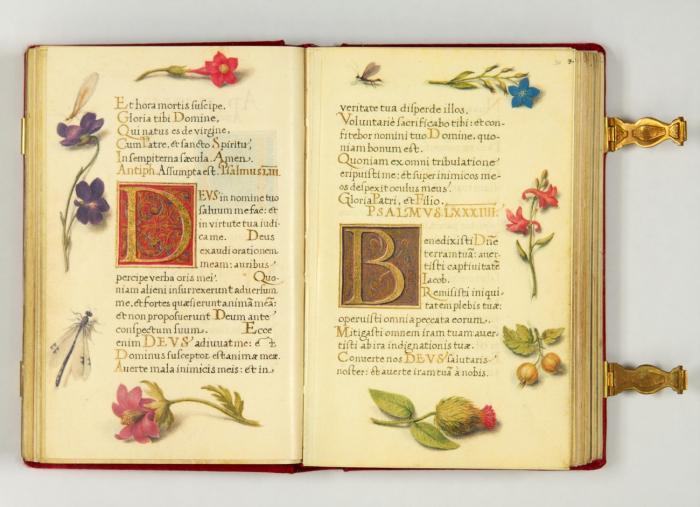 Et hora mortis suscipe.
Gloria tibi Domine,
Qui natus es de virgine,
Cum Patre, et sancto Spiritu,
In sempiterna sæcula. Amen.
Antiph. Assumpta est. Psalmus LIII.
DEVS in nomine tuo
salvum me fac: et
in virtute tua iudi-
ca me. Deus
exaudi orationem
meam: auribus
percipe verba oris mei. Quo-
niam alieni insurrexerunt adversum
me, et fortes quæsierunt animā meā:
et non proposuerunt Deum ante
conspectum suum. Ecce
enim DEVS adiuvat me: et
Dominus susceptor est animæ meæ.
Averte mala inimicis meis: et in
veritate tua disperde illos.
Voluntariè sacrificabo tibi: et con-
fitebor nomini tuo Domine, quo-
niam bonum est.
Quoniam ex omni tribulatione
eripuisti me: et super inimicos me-
os despexit oculus meus.
Gloria Patri, et Filio.
PSALMVS LXXXIIII.
Benedixisti Dñe
terram tuā: aver-
tisti captivitatē
Iacob.
Remisisti iniqui-
tatem plebis tuæ:
operuisti omnia peccata eorum.
Mitigasti omnem iram tuam: aver-
tisti ab ira indignationis tuæ.
Converte nos DEVS salutaris
noster: et averte iram tuā à nobis.